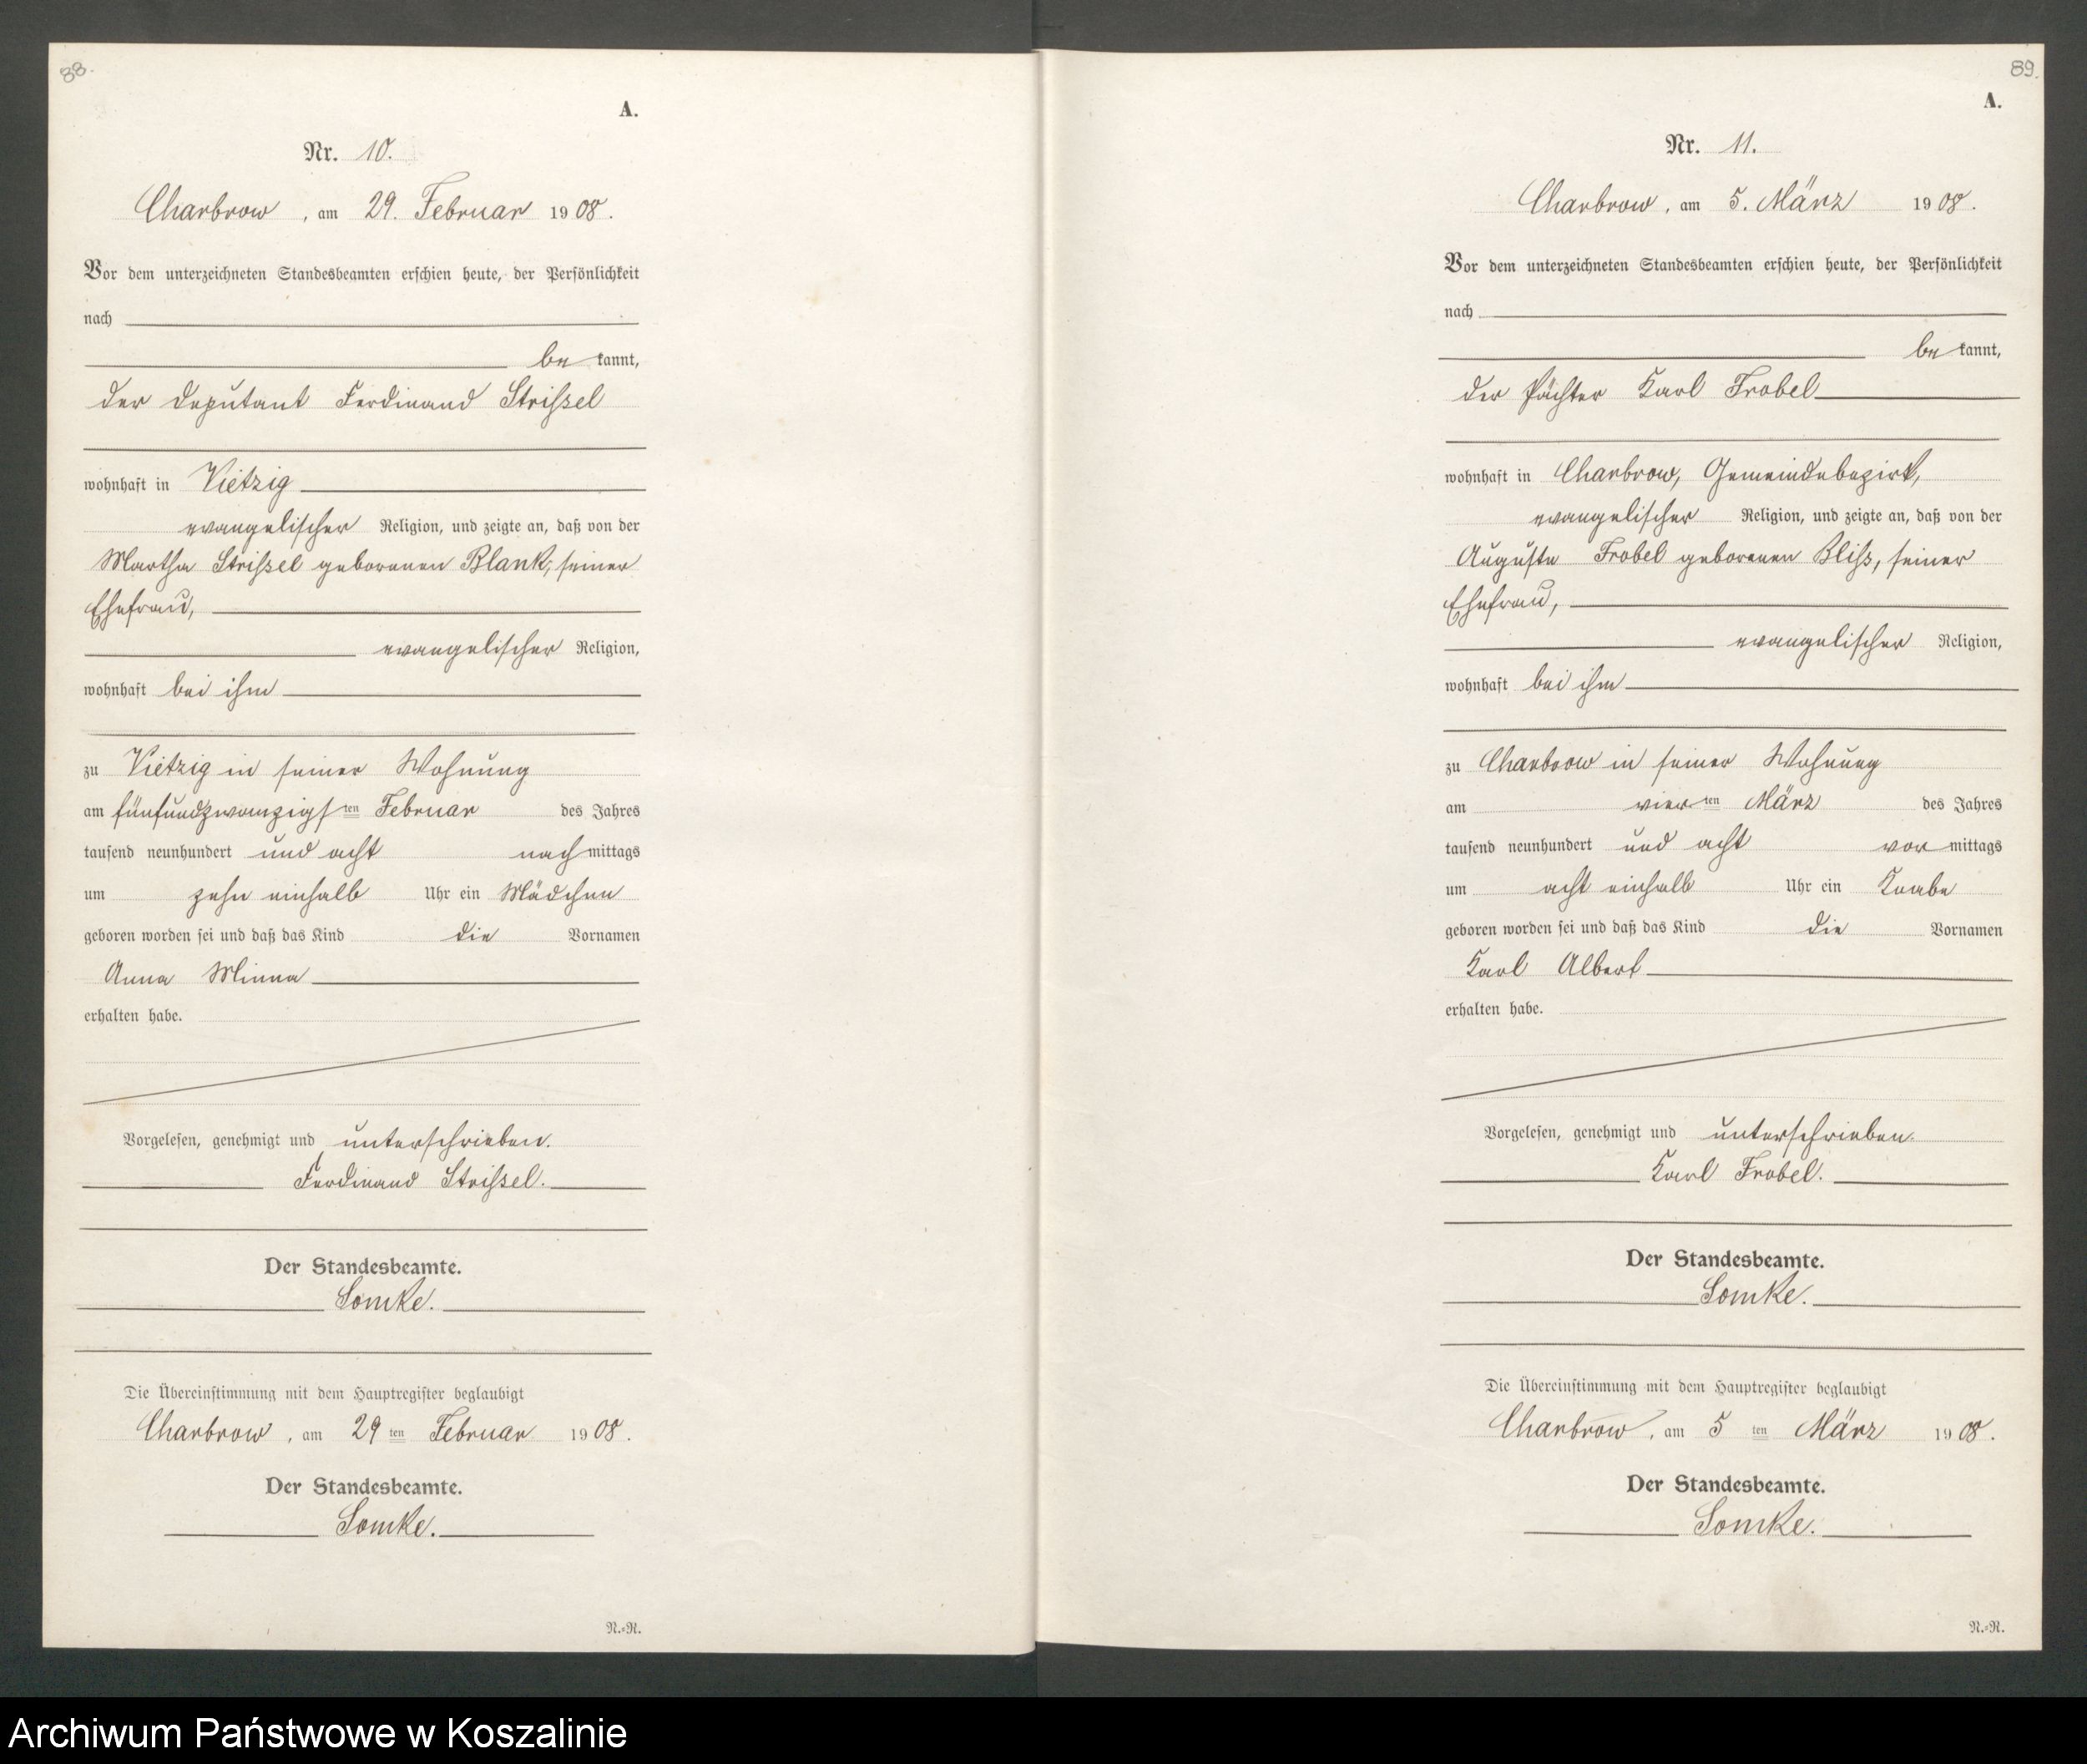 88.
A.
Nr. 10.
Charbrow, am 29. Februar 1908.
Vor dem unterzeichneten Standesbeamten erschien heute, der Persönlichkeit
nach
be kannt,
der Deputant Ferdinand Strißel
wohnhaft in Vietzig
evangelischer Religion, und zeigte an, daß von der
Martha Strißel geborenen Blank, seiner
Ehefrau,
evangelischer Religion,
wohnhaft bei ihm
zu Vietzig in seiner Wohnung
am fünfundzwanzigsten Februar des Jahres
tausend neunhundert und acht nachmittags
um zehn einhalb Uhr ein Mädchen
geboren worden sei und daß das Kind die Vornamen
Anna Minna
erhalten habe.
Vorgelesen, genehmigt und unterschrieben.
Ferdinand Strißel.
Der Standesbeamte.
Somke.
Die Übereinstimmung mit dem Hauptregister beglaubigt
Charbrow, am 29ten Februar 1908.
Der Standesbeamte.
Somke.
N.=N.
89.
A.
Nr. 11.
Charbrow, am 5. März 1908.
Vor dem unterzeichneten Standesbeamten erschien heute, der Persönlichkeit
nach
be kannt,
der Pächter Karl Frobel
wohnhaft in Charbrow, Gemeindebezirk,
evangelischer Religion, und zeigte an, daß von der
Auguste Frobel geborenen Bliß, seiner
Ehefrau,
evangelischer Religion,
wohnhaft bei ihm
zu Charbrow in seiner Wohnung
am vierten März des Jahres
tausend neunhundert und acht vormittags
um acht einhalb Uhr ein Knabe
geboren worden sei und daß das Kind die Vornamen
Karl Albert
erhalten habe.
Vorgelesen, genehmigt und unterschrieben.
Karl Frobel.
Der Standesbeamte.
Somke.
Die Übereinstimmung mit dem Hauptregister beglaubigt
Charbrow, am 5ten März 1908.
Der Standesbeamte.
Somke.
N.=N.
Archiwum Państwowe w Koszalinie